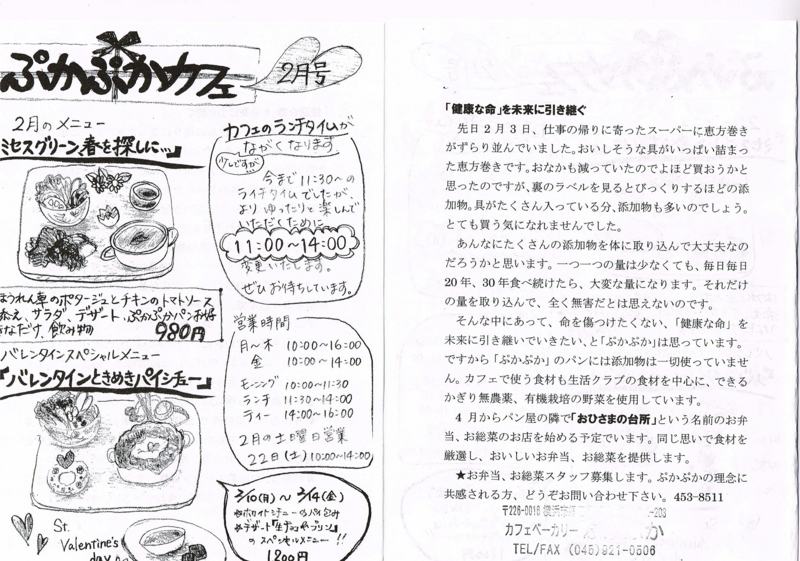 ぷかぷかカフェ
2月号
2月のメニュー
ミセスグリーン,春を探しに…』
ほうれん草のポタージュとチキンのトマトソース
添え、サラダ、デザート、ぷかぷかパン
きなだけ、飲み物 980円
バレンタインスペシャルメニュー
『バレンタインときめきパイシチュー』
St.
Valentine's
day
カフェのランチタイムが
ながくなります
少しですが
今まで 11:30~の
ランチタイムでしたが、
よりゆったりと楽しんで
いただくために
11:00~14:00
変更いたします。
ぜひお待ちしています。
営業時間
月~木 10:00~16:00
金 10:00~14:00
モーニング 10:00~11:30
ランチ 11:30~14:00
ティー 14:00~16:00
2月の土曜日営業
22日(土) 10:00~14:00
2/10(月)~2/14(金)
ホワイトシチューのパイ包み
デザート
のスペシャルメニュー!!
1200円
「健康な命」を未来に引き継ぐ
先日2月3日、仕事の帰りに寄ったスーパーに恵方巻き
がずらり並んでいました。おいしそうな具がいっぱい詰まっ
た恵方巻きです。おなかも減っていたのでよほど買おうかと
思ったのですが、裏のラベルを見るとびっくりするほどの添
加物。具がたくさん入っている分、添加物も多いのでしょう。
とても買う気になれませんでした。
あんなにたくさんの添加物を体に取り込んで大丈夫なの
だろうかと思います。一つ一つの量は少なくても、毎日毎日
20年、30年食べ続けたら、大変な量になります。それだけ
の量を取り込んで、全く無害だとは思えないのです。
そんな中にあって、命を傷つけたくない、「健康な命」を
未来に引き継いでいきたい、と「ぷかぷか」は思っています。
ですから「ぷかぷか」のパンには添加物は一切使っていませ
ん。カフェで使う食材も生活クラブの食材を中心に、できる
かぎり無農薬、有機栽培の野菜を使用しています。
4月からパン屋の隣で「おひさまの台所」という名前のお弁
当、お総菜のお店を始める予定でいます。同じ思いで食材を
厳選し、おいしいお弁当、お総菜を提供します。
★お弁当、お総菜スタッフ募集します。ぷかぷかの理念に
共感される方、どうぞお問い合わせ下さい。453-8511
〒226-0018 横浜市 -203
カフェベーカリー か
TEL/FAX (045)921-0506